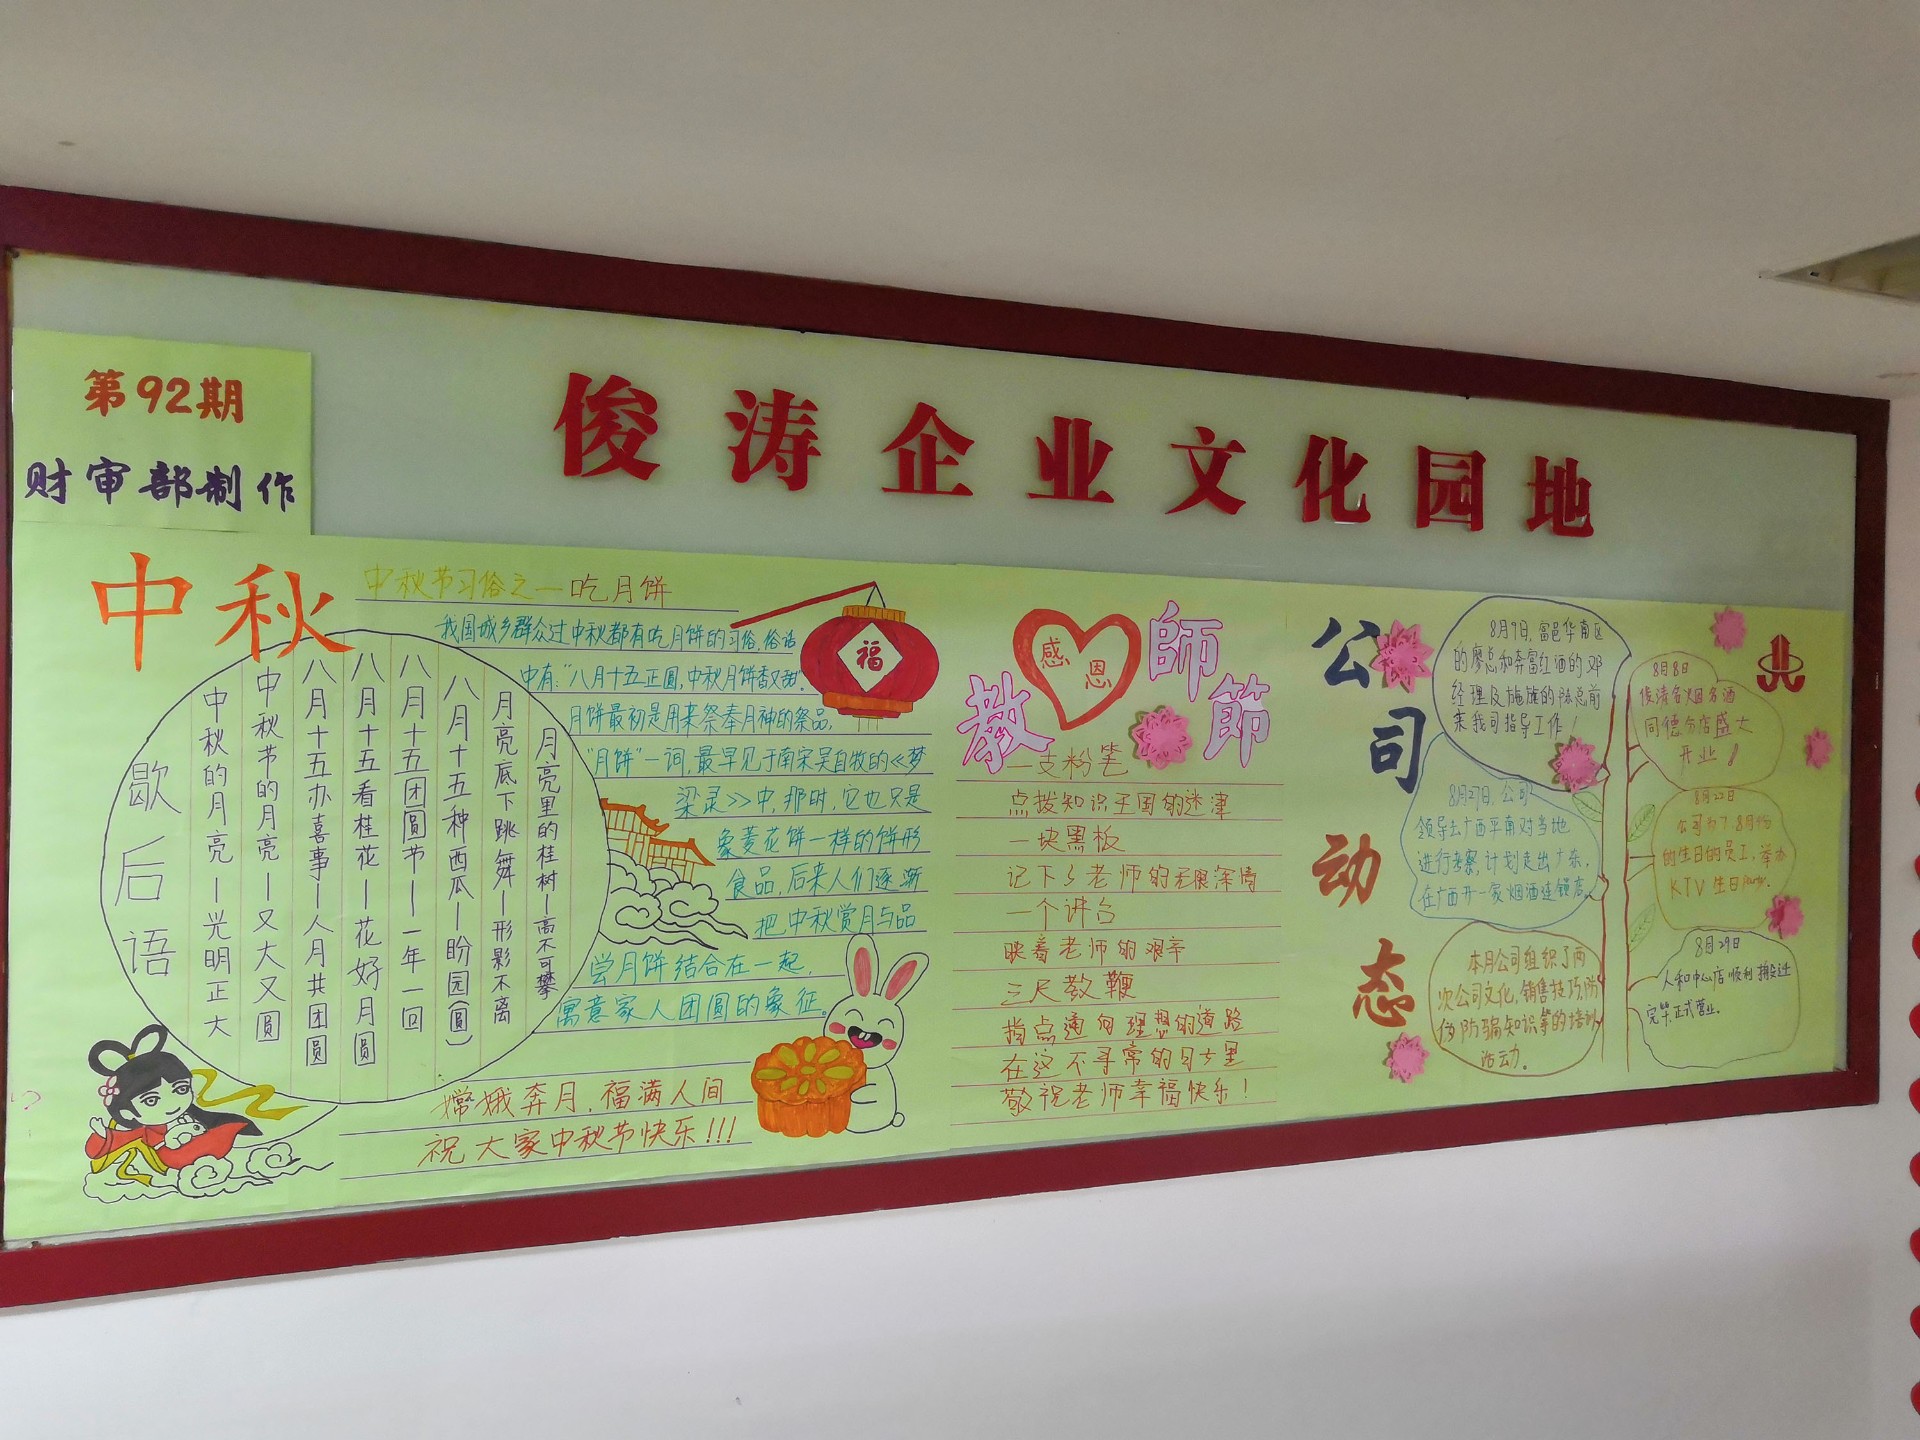 俊涛企业文化园地
第92期
财审部制作
中秋
歇后语
中秋的月亮—光明正大
中秋节的月亮—又大又圆
八月十五办喜事—人月共团圆
八月十五看桂花—花好月圆
八月十五团圆节—一年一回
八月十五种西瓜—盼园(圆)
月亮底下跳舞—形影不离
月亮里的桂树—高不可攀
中秋节习俗之一吃月饼
我国城乡群众过中秋都有吃月饼的习俗,俗话
中有:“八月十五正圆,中秋月饼香又甜”.
月饼最初是用来祭奉月神的祭品,
“月饼”一词,最早见于南宋吴自牧的《梦
梁录》中,那时,它也只是
象菱花饼一样的饼形
食品,后来人们逐渐
把中秋赏月与品
尝月饼结合在一起,
寓意家人团圆的象征。
嫦娥奔月,福满人间
祝大家中秋节快乐!!!
福
感恩
教師節
一支粉笔
点拨知识王国的迷津
一块黑板
记下了老师的无限深情
一个讲台
映着老师的艰辛
三尺教鞭
指点通向理想的道路
在这不寻常的日子里
敬祝老师幸福快乐!
公司动态
8月9日,富邑华南区
的廖总和奔富红酒的邓
经理及施施的陈总前
来我司指导工作!
8月27日,公司
领导去广西平南对当地
进行考察,计划走出广东,
在广西开一家烟酒连锁店.
本月公司组织了两
次公司文化,销售技巧,防
伪防骗知识等的培训
活动.
8月8日
俊涛名烟名酒
同德分店盛大
开业!
8月22日
公司和了8月份
的生日的员工,举办
KTV生日party.
8月29日
人和中心店顺利搬迁
完毕正式营业.